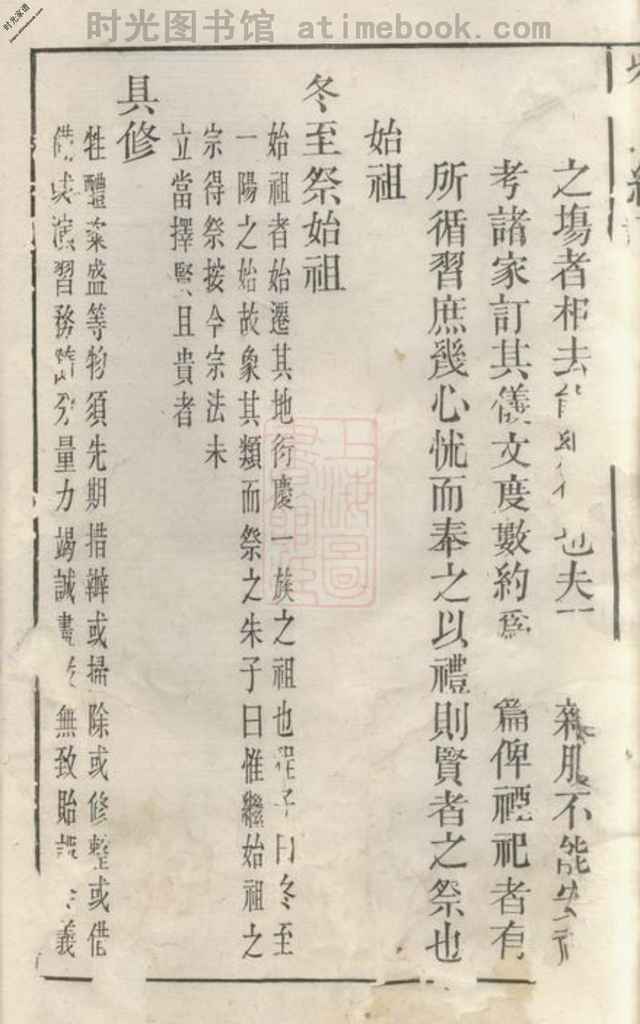 时光图书馆 atimebook.com
时光家谱
www.atimebook.com
之塲者相去 也夫 雜服不能安
考諸家訂其儀文度數約爲 篇俾禋祀者有
所循習庶幾心怵而奉之以禮則賢者之祭也
始祖
冬至祭始祖
始祖者始遷其地衍慶一族之祖也程子曰冬至
一陽之始故象其類而祭之朱子曰惟繼始祖之
宗得祭按今宗法未
立當擇賢且貴者
具修
牲醴粢盛等物須先期措辦或掃除或修整或借
備或演習務 分量力竭誠盡 無致貽誤 義